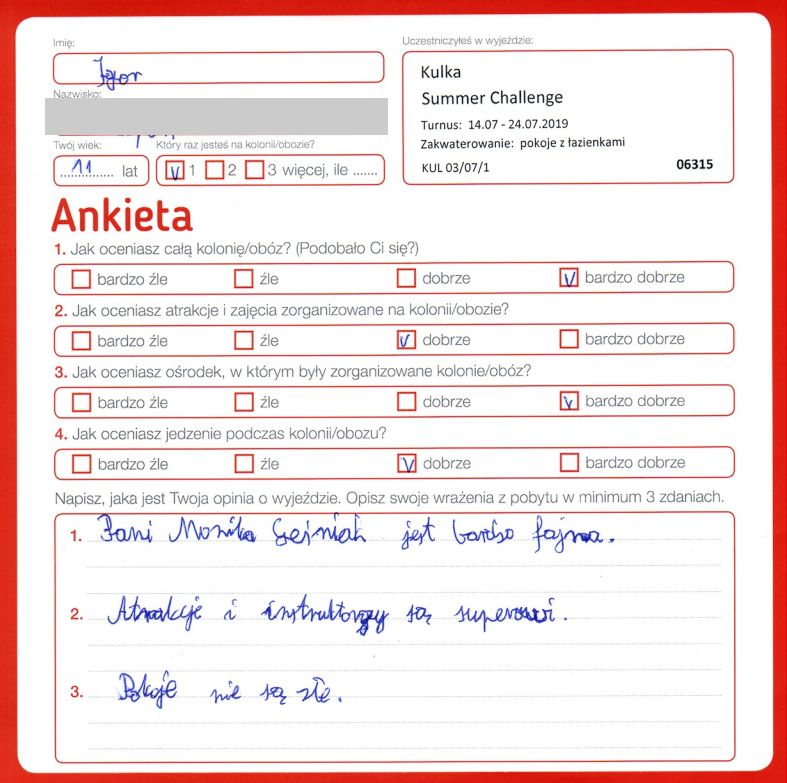 Imię:
Igor
Nazwisko:
Twój wiek:
Który raz jesteś na kolonii/obozie?
11 lat
V 1 2 3 więcej, ile .......
Uczestniczyłeś w wyjeździe:
Kulka
Summer Challenge
Turnus: 14.07 - 24.07.2019
Zakwaterowanie: pokoje z łazienkami
KUL 03/07/1 06315
Ankieta
1. Jak oceniasz całą kolonię/obóz? (Podobało Ci się?)
bardzo źle źle dobrze V bardzo dobrze
2. Jak oceniasz atrakcje i zajęcia zorganizowane na kolonii/obozie?
bardzo źle źle V dobrze bardzo dobrze
3. Jak oceniasz ośrodek, w którym były zorganizowane kolonie/obóz?
bardzo źle źle dobrze V bardzo dobrze
4. Jak oceniasz jedzenie podczas kolonii/obozu?
bardzo źle źle V dobrze bardzo dobrze
Napisz, jaka jest Twoja opinia o wyjeździe. Opisz swoje wrażenia z pobytu w minimum 3 zdaniach.
1. Pani Monika jest bardzo fajna.
2. Atrakcje i instruktorzy są superowi.
3. Pokoje nie są złe.